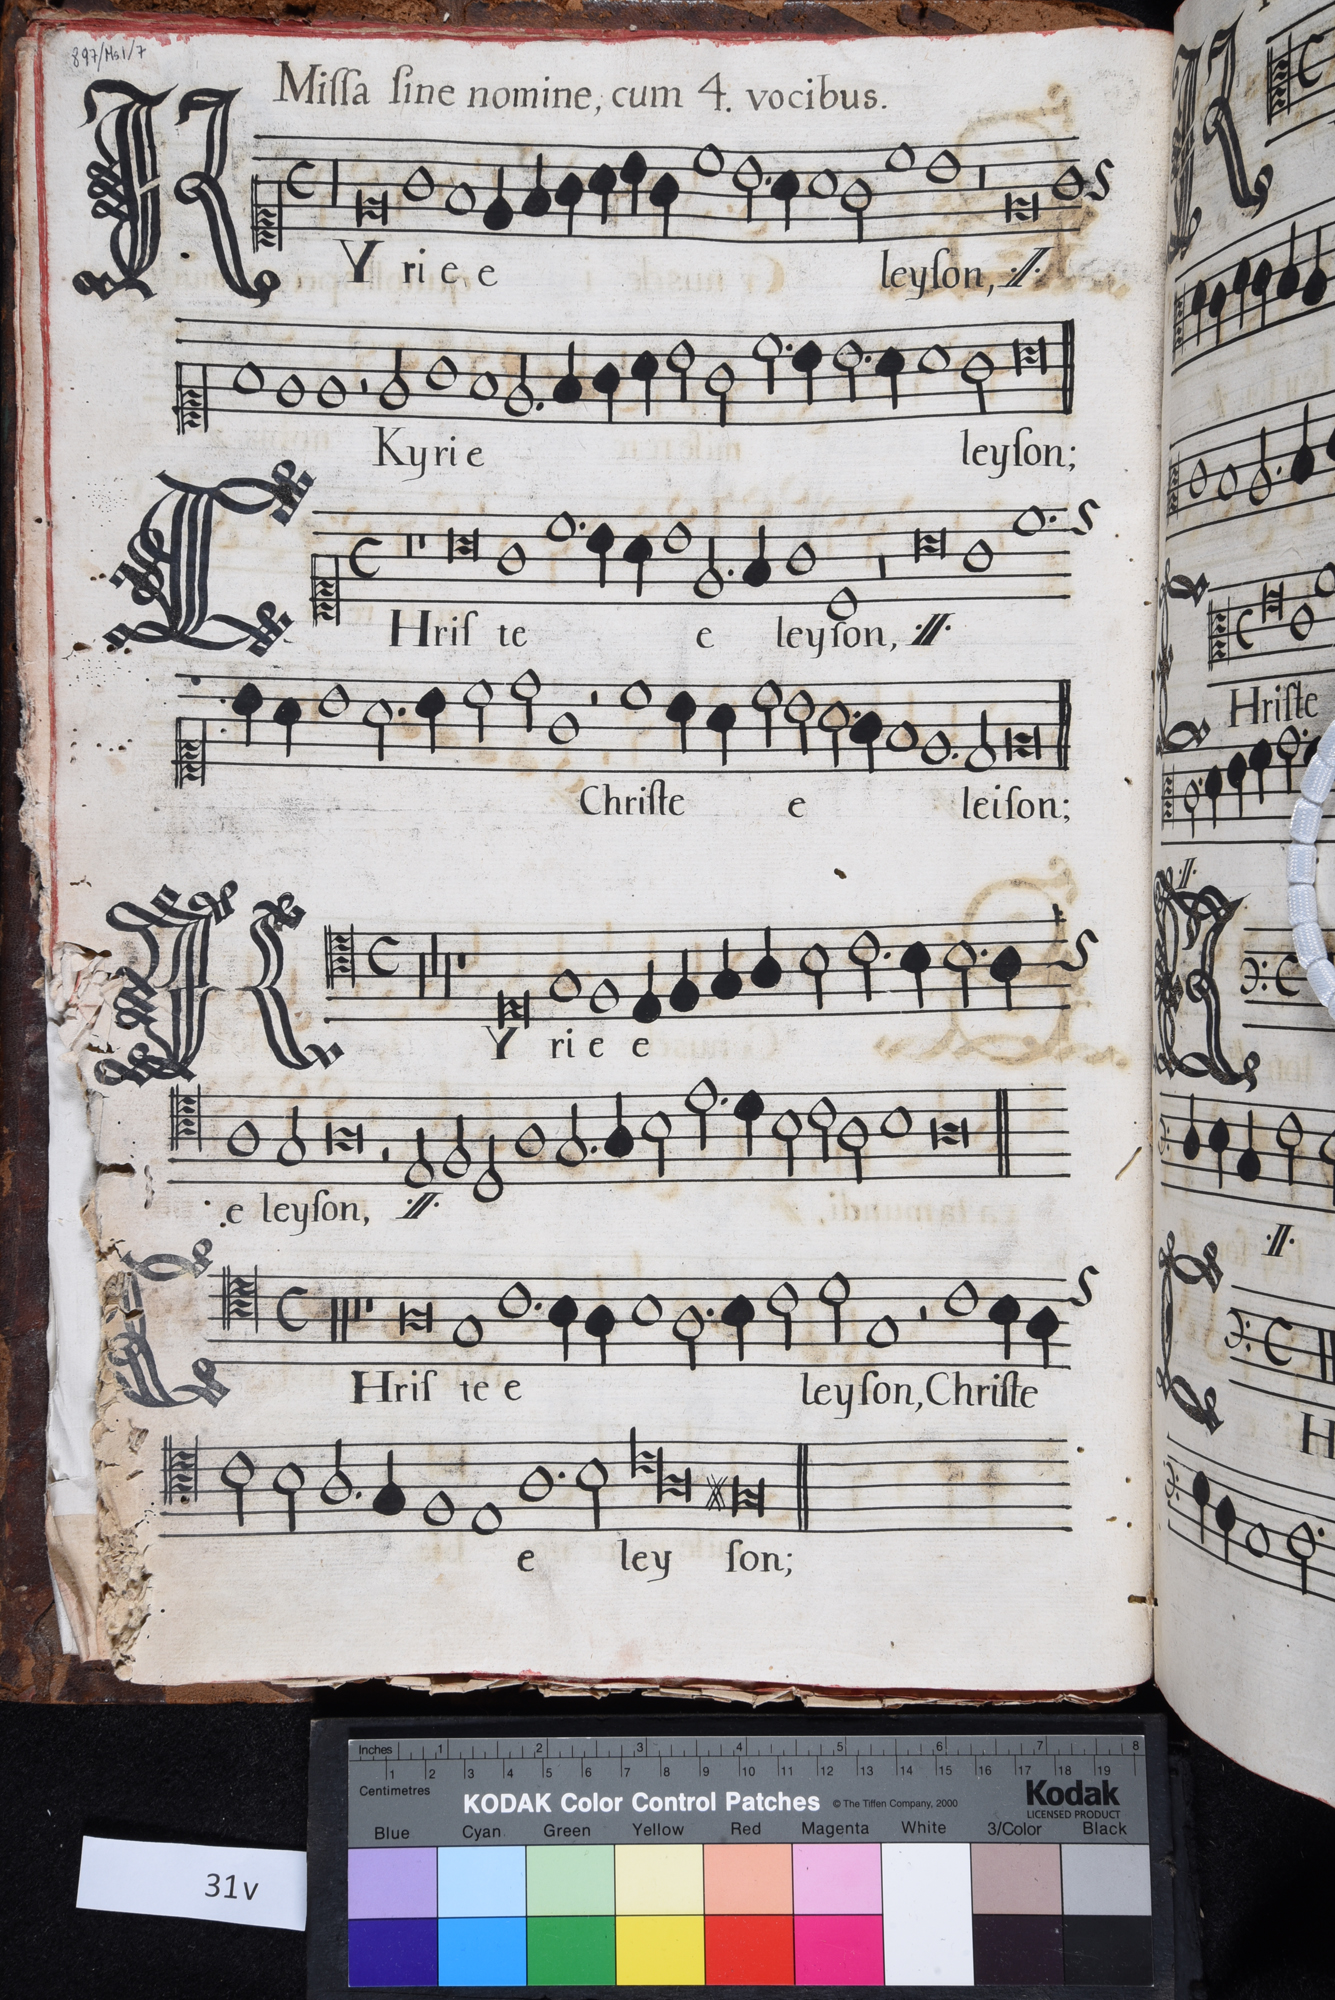 897/Ms1/7
Miſſa ſine nomine, cum 4. vocibus.
KYriee leyſon, //.
Kyrie leyſon;
CHriſte e leyſon, //.
Chriſte e leiſon;
KYriee e
e leyſon, //.
CHriſ te e leyſon, Chriſte
e ley ſon;
Hriſte
//.
//.
H
31v
Inches 1 2 3 4 5 6 7 8
1 2 3 4 5 6 7 8 9 10 11 12 13 14 15 16 17 18 19
Centimetres
KODAK Color Control Patches © The Tiffen Company, 2000 Kodak
LICENSED PRODUCT
Blue Cyan Green Yellow Red Magenta White 3/Color Black